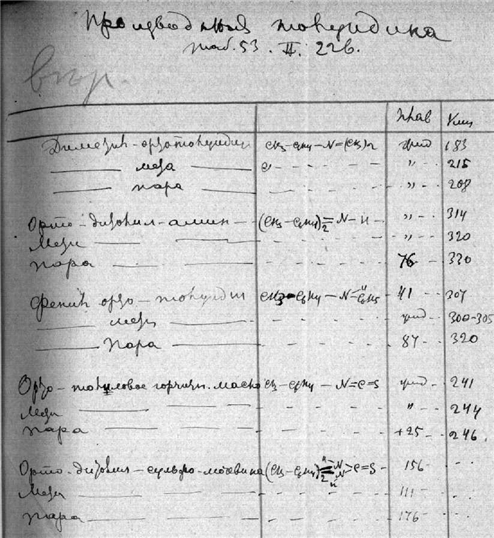 Производныя толуидина
таб. 53. II. 226.
втор.
Плав Кип
Диметил-орто толуидин CH3-C6H4-N=(CH3)2 жид 183
— мета — " 215
— пара — " 208
Орто-дитолил-амин- (CH3-C6H4)2=N-H " 314
Мета — " 320
Пара — 76 330
Фенил орто-толуидин CH3-C6H4-N=C6H5 41 307
— мета — жид 300-305
— Пара — 87 320
Орто-толиловое горчичн. масло CH3-C6H4-N=C=S жид 241
Мета — " 244
Пара — +25 246
Орто-дитолил-сульфо-мочевина (CH3-C6H4)2 N N >C=S 156
Мета — 111
Пара — 176